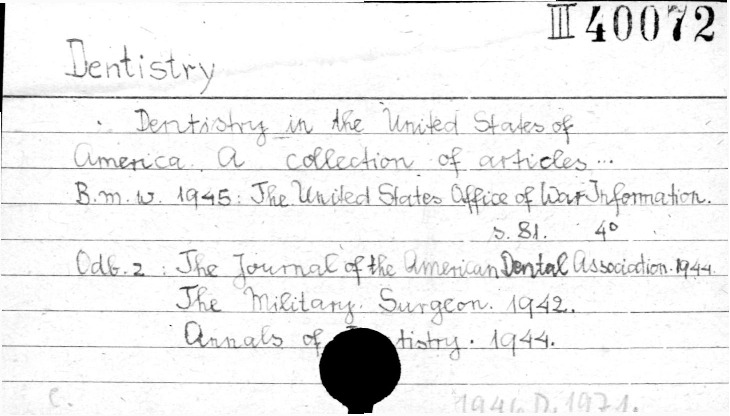 III 40072
Dentistry
. Dentistry in the United States of
America. A collection of articles...
B.m.w. 1945: The United States Office of War Information.
s. 81. 4°
Odb. z : The Journal of the American Dental Association. 1944.
The Military Surgeon. 1942.
Annals of tistry. 1944.
C. 1946 D. 1971.